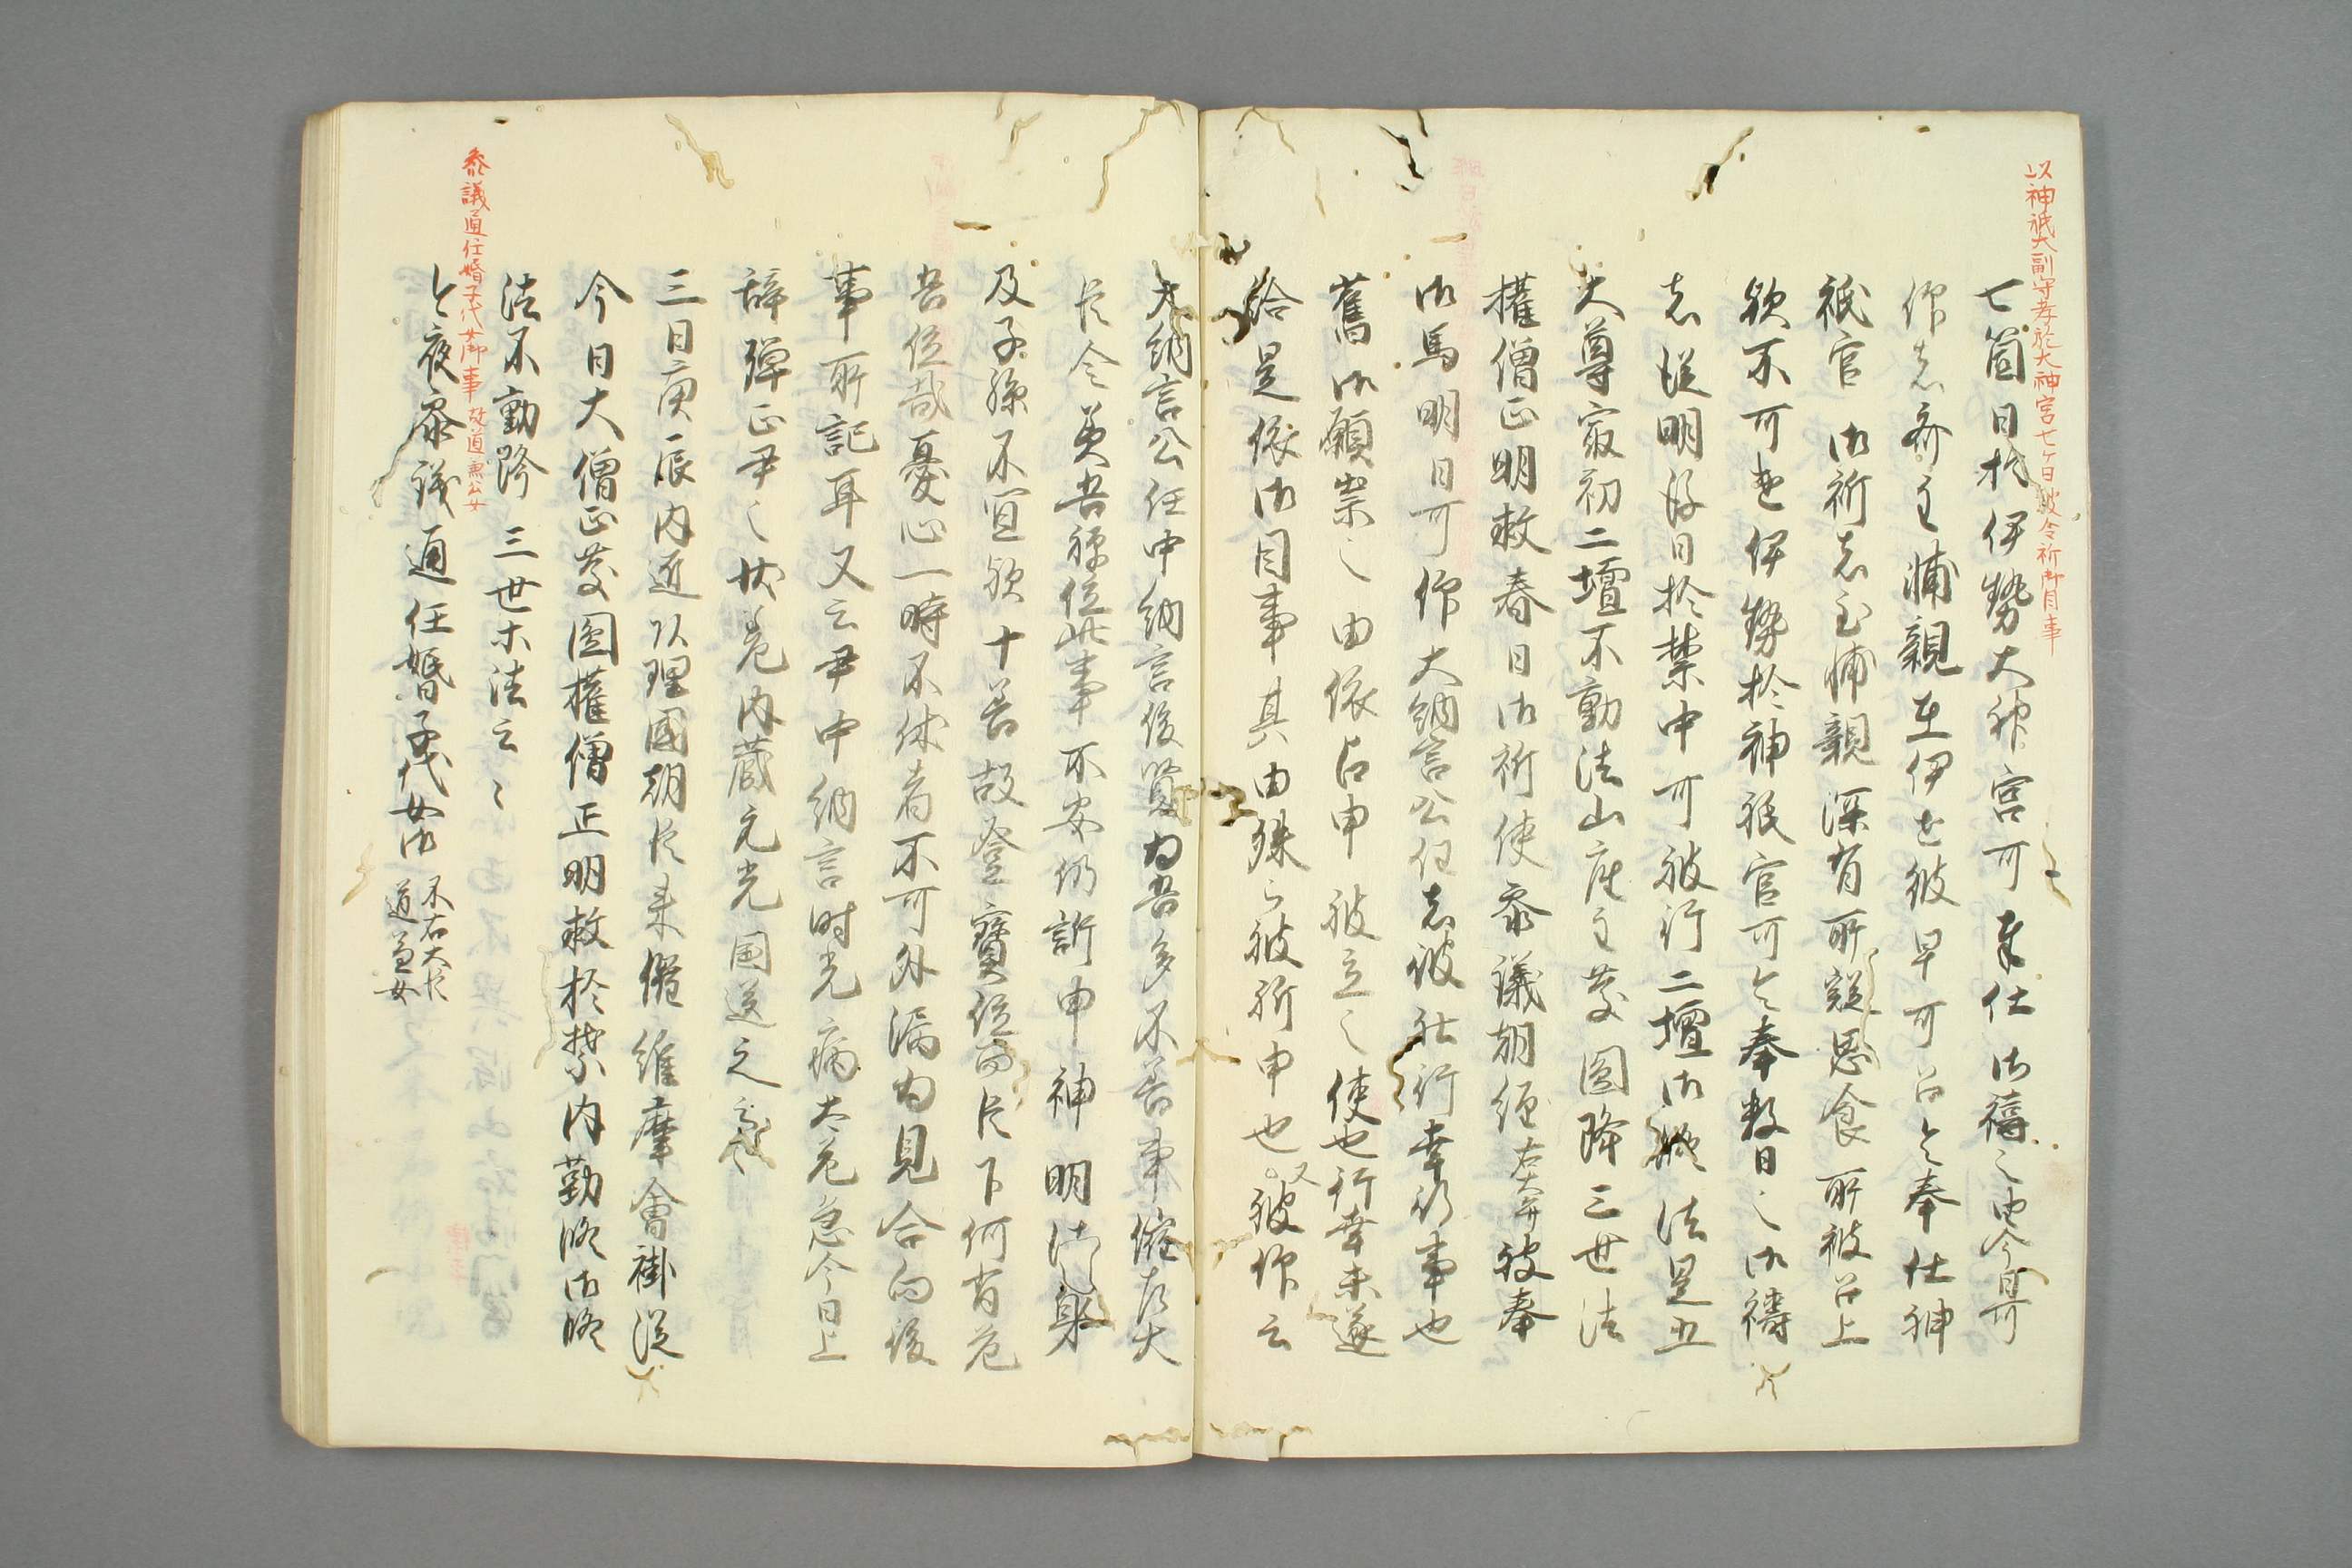 以神祇大副守孝於大神宮七ケ日被令祈御目事
七箇日於伊勢大神宮可奉仕御禱之由今日可
仰者齊主輔親在伊世彼早可召令奉仕神
祇官御祈者至輔親深有所疑思食所被召上
欤不可遣伊勢於神祇官可令奉数日之御禱
者從明後日於禁中可被行二壇御修法是五
大尊最初二壇不動法山座主慶圓降三世法
權僧正明救春日御祈使参議朝經右大弁被奉
御馬明日可仰大納言公任者彼社行幸行事也
舊御願祟之由依占申被立之使也行幸未遂
給是依御目事其由殊被祈申也又被仰云
大納言公任中納言俊賢為吾多不善事縱左大
臣令責吾禪位此事不安仍訴申神明清躬
及子孫不宜欤十善故登寶位而臣下何有危
吾位哉憂心一時不休者不可外漏為見合向後
事所記耳又云尹中納言時光病太危急今日上
辞彈正尹之状差内蔵允光国送之
三日庚辰内匠以理國朝臣来催維摩會褂從
今日大僧正慶圓權僧正明救於禁内勤修御修
法不動降三世ホ法云々
今夜参議通任婚子代女御故右大臣道兼女
参議通任婚子代女御事故道兼公女